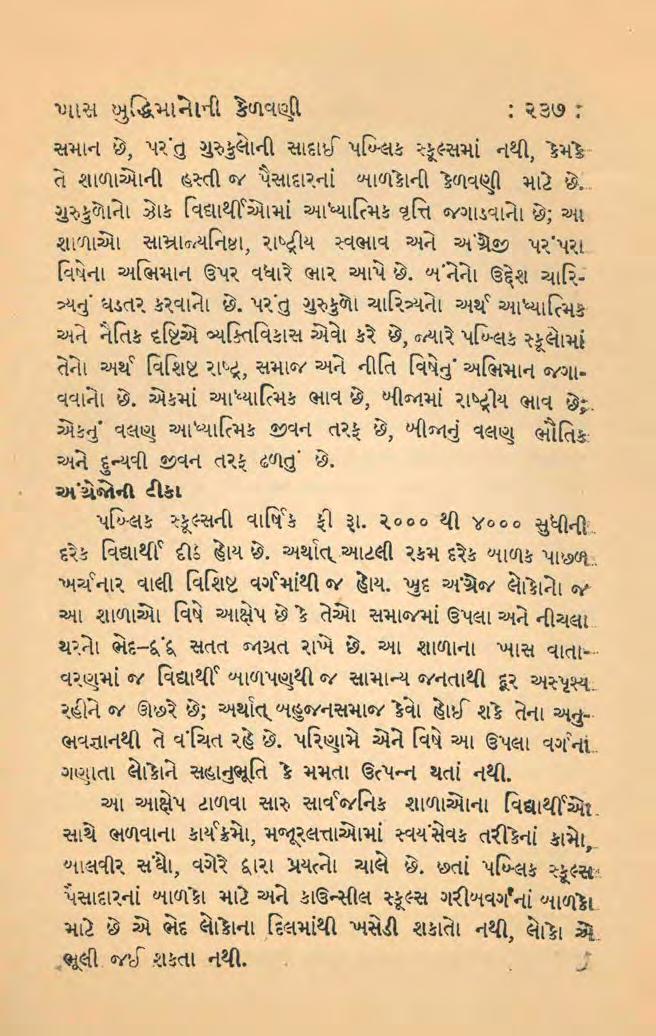 ખાસ બુદ્ધિમાનોની કેળવણી : ૨૩૭ :
સમાન છે, પરંતુ ગુરુકુલોની સાદાઈ પબ્લિક સ્કૂલ્સમાં નથી, કેમકે
તે શાળાઓની હસ્તી જ પૈસાદારનાં બાળકોની કેળવણી માટે છે.
ગુરુકુળોનો ઝોક વિદ્યાર્થીઓમાં આધ્યાત્મિક વૃત્તિ જગાડવાનો છે; આ
શાળાઓ સામ્રાજ્યનિષ્ઠા, રાષ્ટ્રીય સ્વભાવ અને અંગ્રેજી પરંપરા
વિષેના અભિમાન ઉપર વધારે ભાર આપે છે. બંનેનો ઉદ્દેશ ચારિ-
ત્ર્યનું ઘડતર કરવાનો છે. પરંતુ ગુરુકુળો ચારિત્ર્યનો અર્થ આધ્યાત્મિક
અને નૈતિક દૃષ્ટિએ વ્યક્તિવિકાસ એવો કરે છે, જ્યારે પબ્લિક સ્કૂલોમાં
તેનો અર્થ વિશિષ્ટ રાષ્ટ્ર, સમાજ અને નીતિ વિષેનું અભિમાન જગા-
વવાનો છે. એકમાં આધ્યાત્મિક ભાવ છે, બીજામાં રાષ્ટ્રીય ભાવ છે;
એકનું વલણ આધ્યાત્મિક જીવન તરફ છે, બીજાનું વલણ ભૌતિક
અને દુન્યવી જીવન તરફ ઢળતું છે.
અંગ્રેજોની ટીકા
પબ્લિક સ્કૂલ્સની વાર્ષિક ફી રૂા. ૨૦૦૦ થી ૪૦૦૦ સુધીની
દરેક વિદ્યાર્થી દીઠ હોય છે. અર્થાત્ આટલી રકમ દરેક બાળક પાછળ
ખર્ચનાર વાલી વિશિષ્ટ વર્ગમાંથી જ હોય. ખુદ અંગ્રેજ લોકોનો જ
આ શાળાઓ વિષે આક્ષેપ છે કે તેઓ સમાજમાં ઉપલા અને નીચલા
થરનો ભેદ-દ્વંદ્વ સતત જાગ્રત રાખે છે. આ શાળાના ખાસ વાતા-
વરણમાં જ વિદ્યાર્થી બાળપણથી જ સામાન્ય જનતાથી દૂર અસ્પૃશ્ય
રહીને જ ઊછરે છે; અર્થાત્ બહુજનસમાજ કેવો હોઈ શકે તેના અનુ-
ભવજ્ઞાનથી તે વંચિત રહે છે. પરિણામે એને વિષે આ ઉપલા વર્ગનાં
ગણાતા લોકોને સહાનુભૂતિ કે મમતા ઉત્પન્ન થતાં નથી.
આ આક્ષેપ ટાળવા સારુ સાર્વજનિક શાળાઓના વિદ્યાર્થીઓ
સાથે ભળવાના કાર્યક્રમો, મજૂરલત્તાઓમાં સ્વયંસેવક તરીકેનાં કામો,
બાલવીર સંઘો, વગેરે દ્વારા પ્રયત્નો ચાલે છે. છતાં પબ્લિક સ્કૂલ્સ
પૈસાદારનાં બાળકો માટે અને કાઉન્સીલ સ્કૂલ્સ ગરીબવર્ગનાં બાળકો
માટે છે એ ભેદ લોકોના દિલમાંથી ખસેડી શકાતો નથી, લોકો એ
ભૂલી જઈ શકતા નથી.